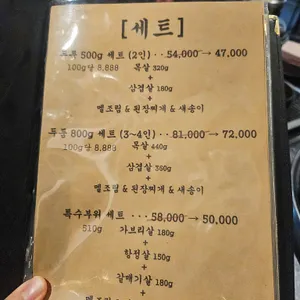 [세트]
두툼 500g 세트 (2인) ·· 54,000 → 47,000
100g당 8,888 목살 320g
+
삼겹살 180g
+
멜조림 & 된장찌개 & 새송이
두툼 800g 세트 (3~4인) ·· 81,000 → 72,000
100g당 8,888 목살 440g
+
삼겹살 360g
+
멜조림 & 된장찌개 & 새송이
특수부위 세트 ··· 58,000 → 50,000
510g 가브리살 180g
+
항정살 150g
+
갈매기살 180g
+
멜조림 & 된장찌개 & 새송이